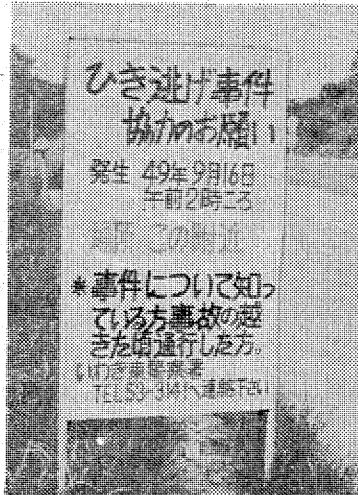 ひき逃げ事件
協力のお願い
発生 49年9月16日
午前2時ころ
場所 この附近
*事件について知っ
ている方事故の起
きた頃通行した方。
いわき東警察署
TEL53-3141へ連絡下さい